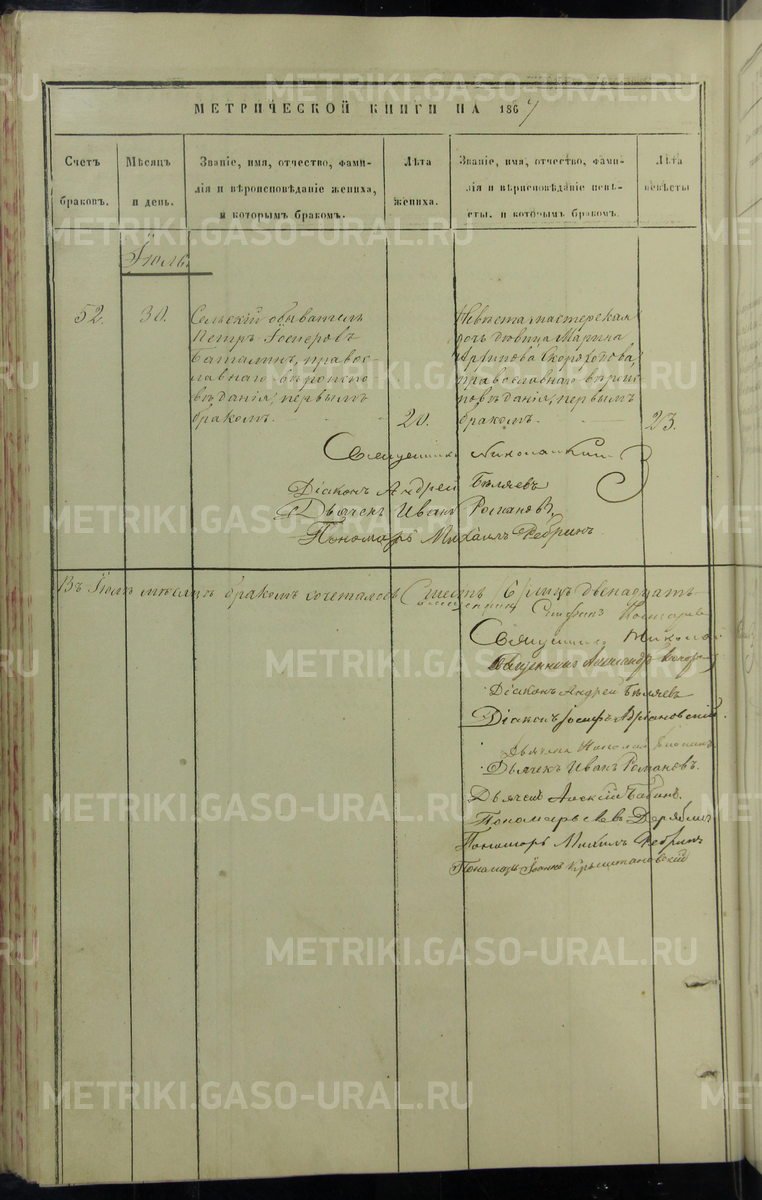 МЕТРИЧЕСКОЙ КНИГИ НА 1867
Счетъ браковъ.
Мѣсяцъ и день.
Званіе, имя, отчество, фами-
лія и вѣроисповѣданіе жениха,
и которымъ бракомъ.
Лѣта жениха.
Званіе, имя, отчество, фами-
лія и вѣроисповѣданіе невѣ-
сты, и которымъ бракомъ.
Лѣта невѣсты
Іюль.
52.
30.
Сельскій обыватель
Петръ
Баталинъ, правос-
лавнаго вѣроиспо
вѣданія, первымъ
бракомъ.
20.
Невѣста, мастерская
дочь дѣвица Марина
Архипова Скороходова,
православнаго вѣроис
повѣданія, первымъ
бракомъ.
23.
Священникъ Николай
Діаконъ Андрей Бѣляевъ
Дьячекъ Иванъ Романовъ,
Пономарь Михаилъ Ребринъ.
Въ Іюлѣ мѣсяцѣ бракомъ сочеталось шесть /6/ лицъ двенадцать
Священникъ Стефанъ
Священникъ Николай
Священникъ Александръ
Діаконъ Андрей Бѣляевъ
Діаконъ Іосифъ Адріановскій.
Дьячекъ Николай
Дьячекъ Иванъ Романовъ.
Дьячекъ Алексій Бабинъ.
Пономарь
Пономарь Михаилъ Ребринъ
Пономарь Іоаннъ
METRIKI.GASO-URAL.RU